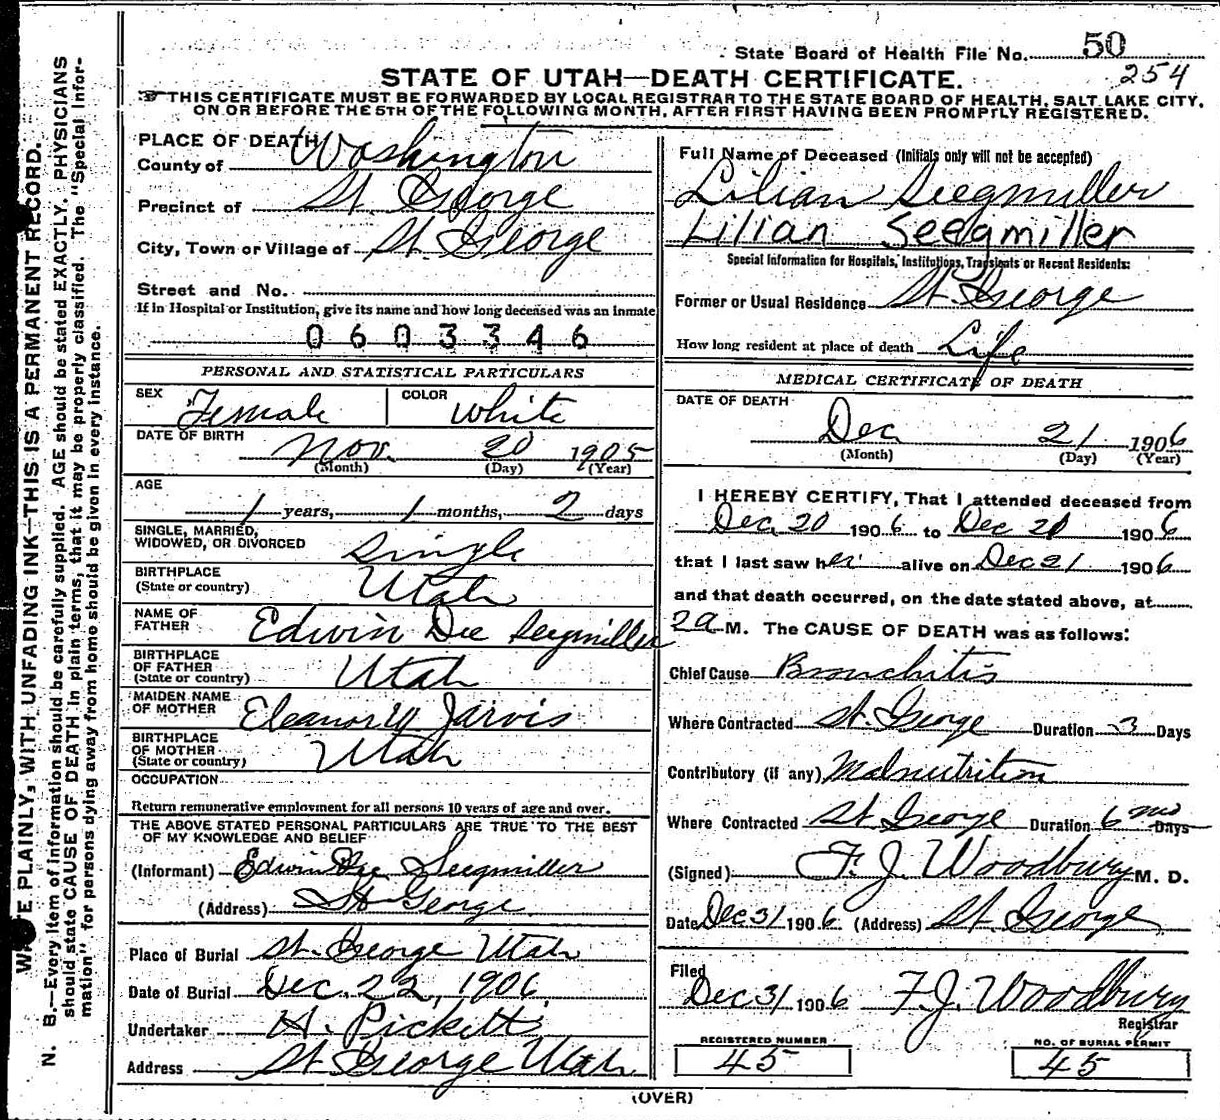 State Board of Health File No. 50
254
STATE OF UTAH—DEATH CERTIFICATE.
THIS CERTIFICATE MUST BE FORWARDED BY LOCAL REGISTRAR TO THE STATE BOARD OF HEALTH, SALT LAKE CITY,
ON OR BEFORE THE 5TH OF THE FOLLOWING MONTH, AFTER FIRST HAVING BEEN PROMPTLY REGISTERED.
PLACE OF DEATH
County of Washington
Precinct of St. George
City, Town or Village of St. George
Street and No.
If in Hospital or Institution, give its name and how long deceased was an inmate
0603346
PERSONAL AND STATISTICAL PARTICULARS
SEX Female COLOR White
DATE OF BIRTH
Nov. 20 1905
(Month) (Day) (Year)
AGE
1 years, 1 months, 2 days
SINGLE, MARRIED,
WIDOWED, OR DIVORCED Single
BIRTHPLACE
(State or country) Utah
NAME OF
FATHER Edwin Dee Seegmiller
BIRTHPLACE
OF FATHER
(State or country) Utah
MAIDEN NAME
OF MOTHER Eleanor W Jarvis
BIRTHPLACE
OF MOTHER
(State or country) Utah
OCCUPATION
Return remunerative employment for all persons 10 years of age and over.
THE ABOVE STATED PERSONAL PARTICULARS ARE TRUE TO THE BEST
OF MY KNOWLEDGE AND BELIEF
(Informant) Edwin Dee Seegmiller
(Address) St George
Place of Burial St. George Utah
Date of Burial Dec. 22, 1906
Undertaker H. Pickett
Address St George Utah
Full Name of Deceased (Initials only will not be accepted)
Lilian Seegmiller
Lilian Seegmiller
Special Information for Hospitals, Institutions, Transients or Recent Residents:
Former or Usual Residence St. George
How long resident at place of death Life
MEDICAL CERTIFICATE OF DEATH
DATE OF DEATH
Dec 21 1906
(Month) (Day) (Year)
I HEREBY CERTIFY, That I attended deceased from
Dec. 20 1906 to Dec 1906
that I last saw her alive on Dec 21 1906
and that death occurred, on the date stated above, at
2 a M. The CAUSE OF DEATH was as follows:
Chief Cause Bronchitis
Where Contracted St. George Duration 3 Days
Contributory (if any) Malnutrition
Where Contracted St George Duration 6 mo Days
(Signed) F. J. Woodbury M. D.
Date Dec 31 1906 (Address) St George
Filed
Dec 31 1906 F. J. Woodbury
Registrar
REGISTERED NUMBER
45
NO. OF BURIAL PERMIT
45
(OVER)
WRITE PLAINLY, WITH UNFADING INK—THIS IS A PERMANENT RECORD.
N. B.—Every item of information should be carefully supplied. AGE should be stated EXACTLY. PHYSICIANS
should state CAUSE OF DEATH in plain terms, that it may be properly classified. The "Special Infor-
mation" for persons dying away from home should be given in every instance.